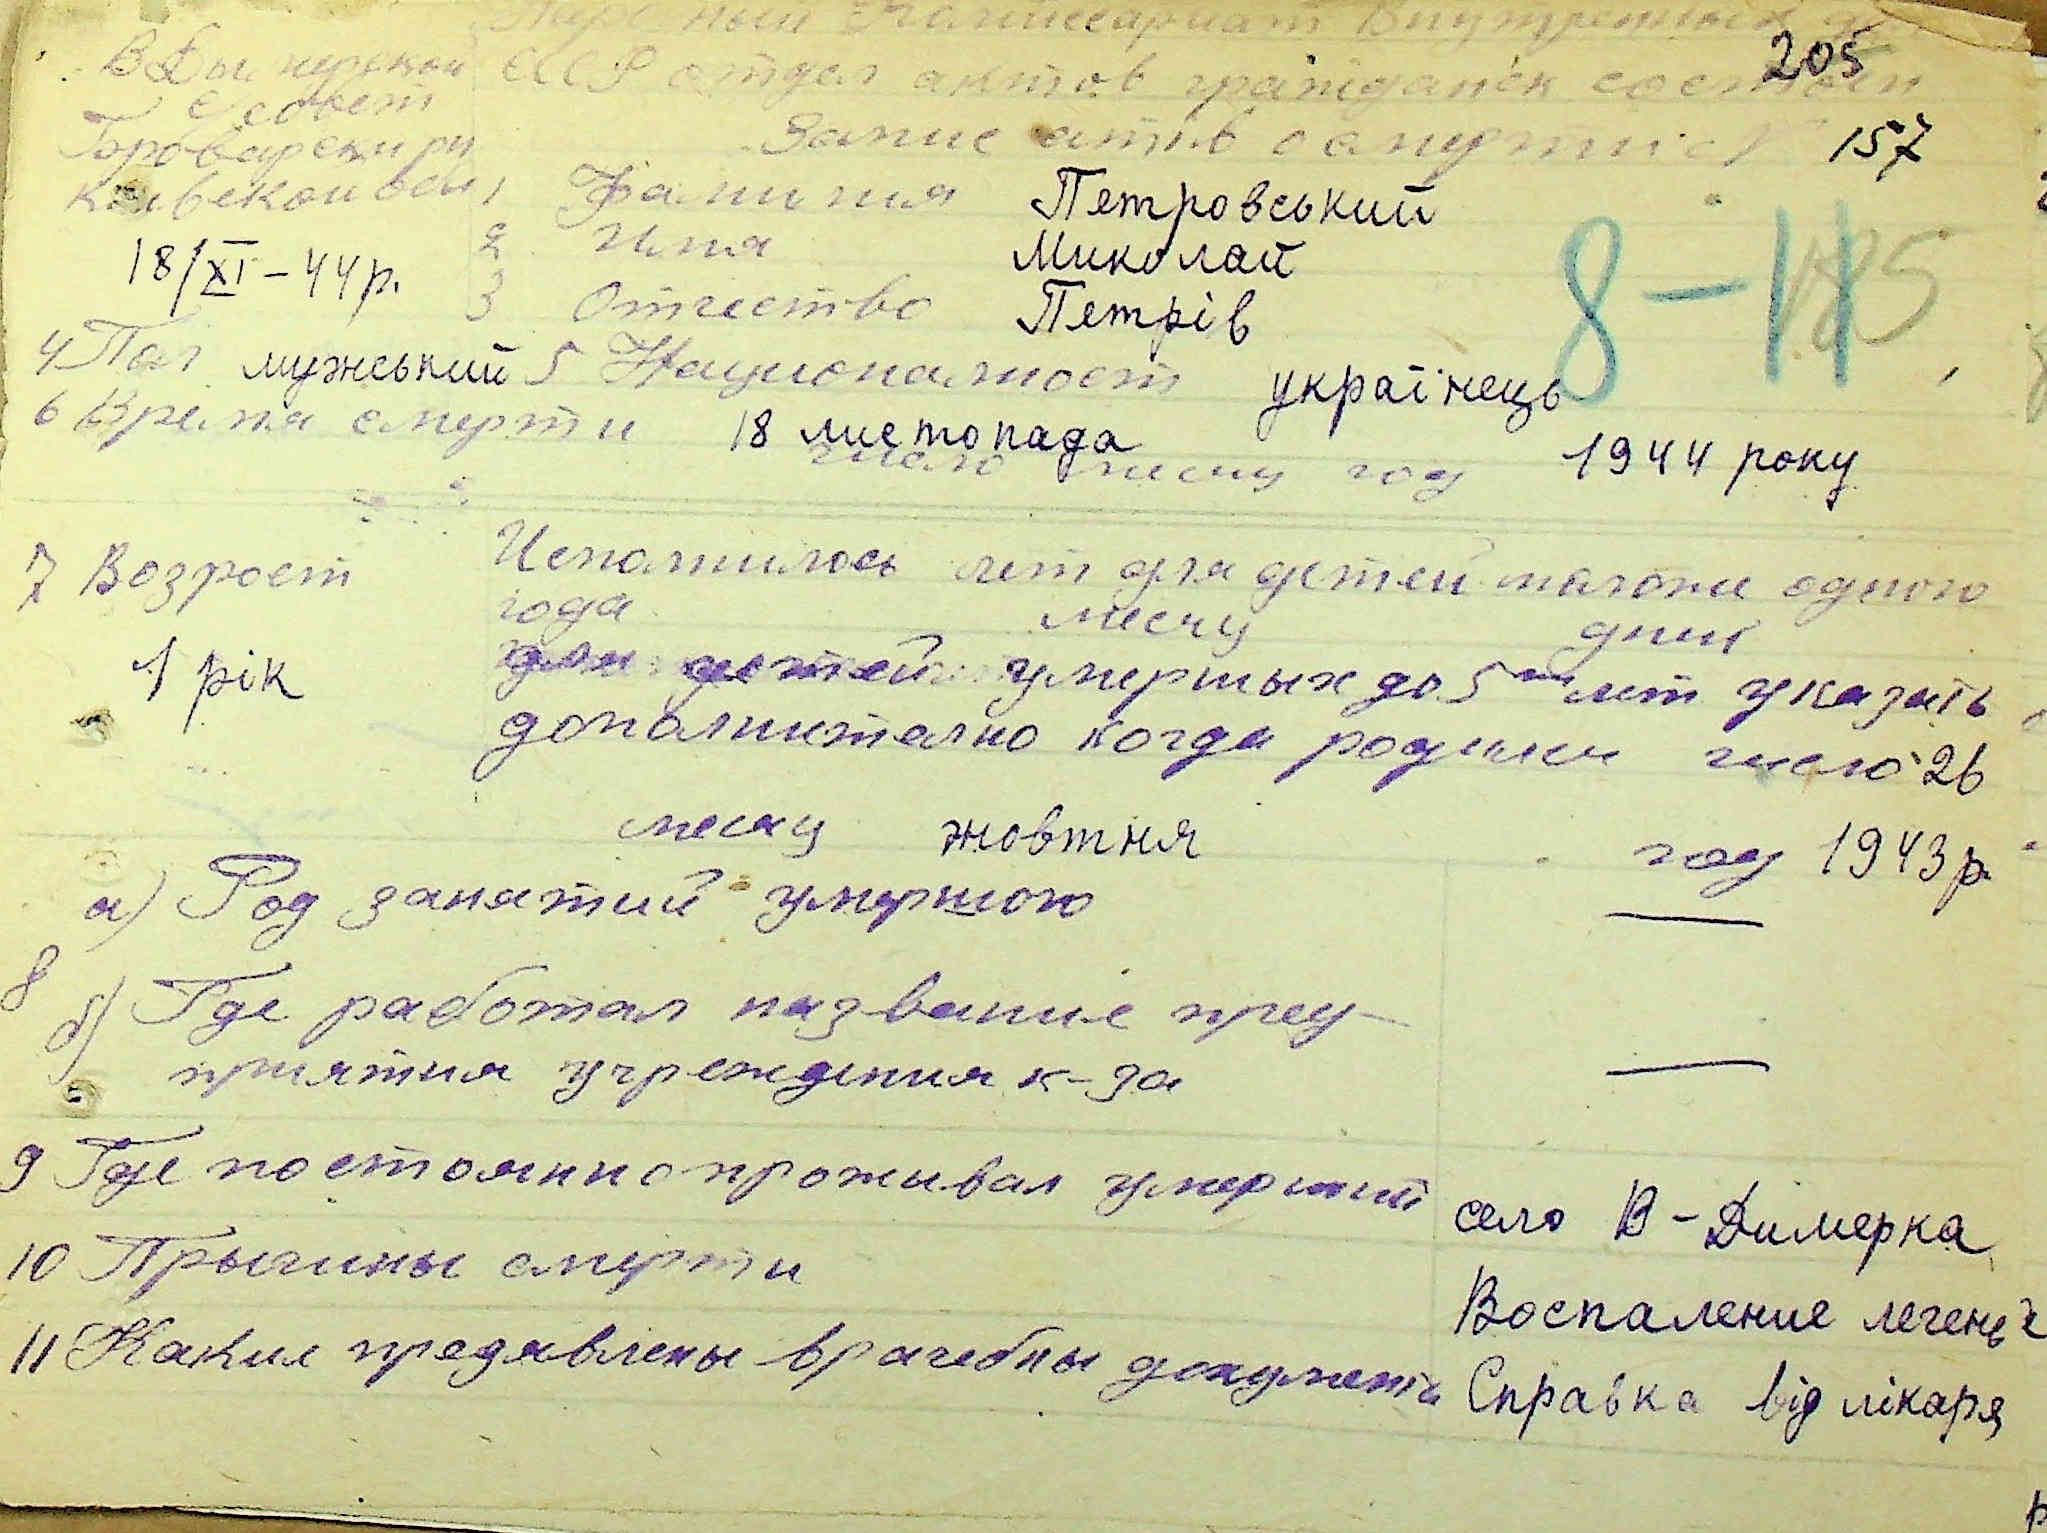 205
В Дымерский Народный Комиссариат Внутренных
с совет СССР отдел актов граждан'ск состоян
Броварский р-н Запис актов о смерти 157
Киевской обл, 1 Фамилия Петровський
2 Имя Миколай
18/XI-44р. 3 Отчество Петрів
8-11 85
4 Пол мужський 5 Националност українець
6 Время смерти 18 листопада 1944 року
число месяц год
7 Возраст Исполнилось лет для детей моложе одного
года месяц дней
1 рік для детей умерших до 5 ти лет указать
дополнително когда родился число 26
месяц жовтня год 1943р.
а) Род занятий умершого —
8
б) Где работал название пред-
приятия учреждения к-за —
9 Где постоянно проживал умерший село В-Димерка
10 Прычины смерти Воспаление легень
11 Какие предявлены врачебны документы Справка від лікаря